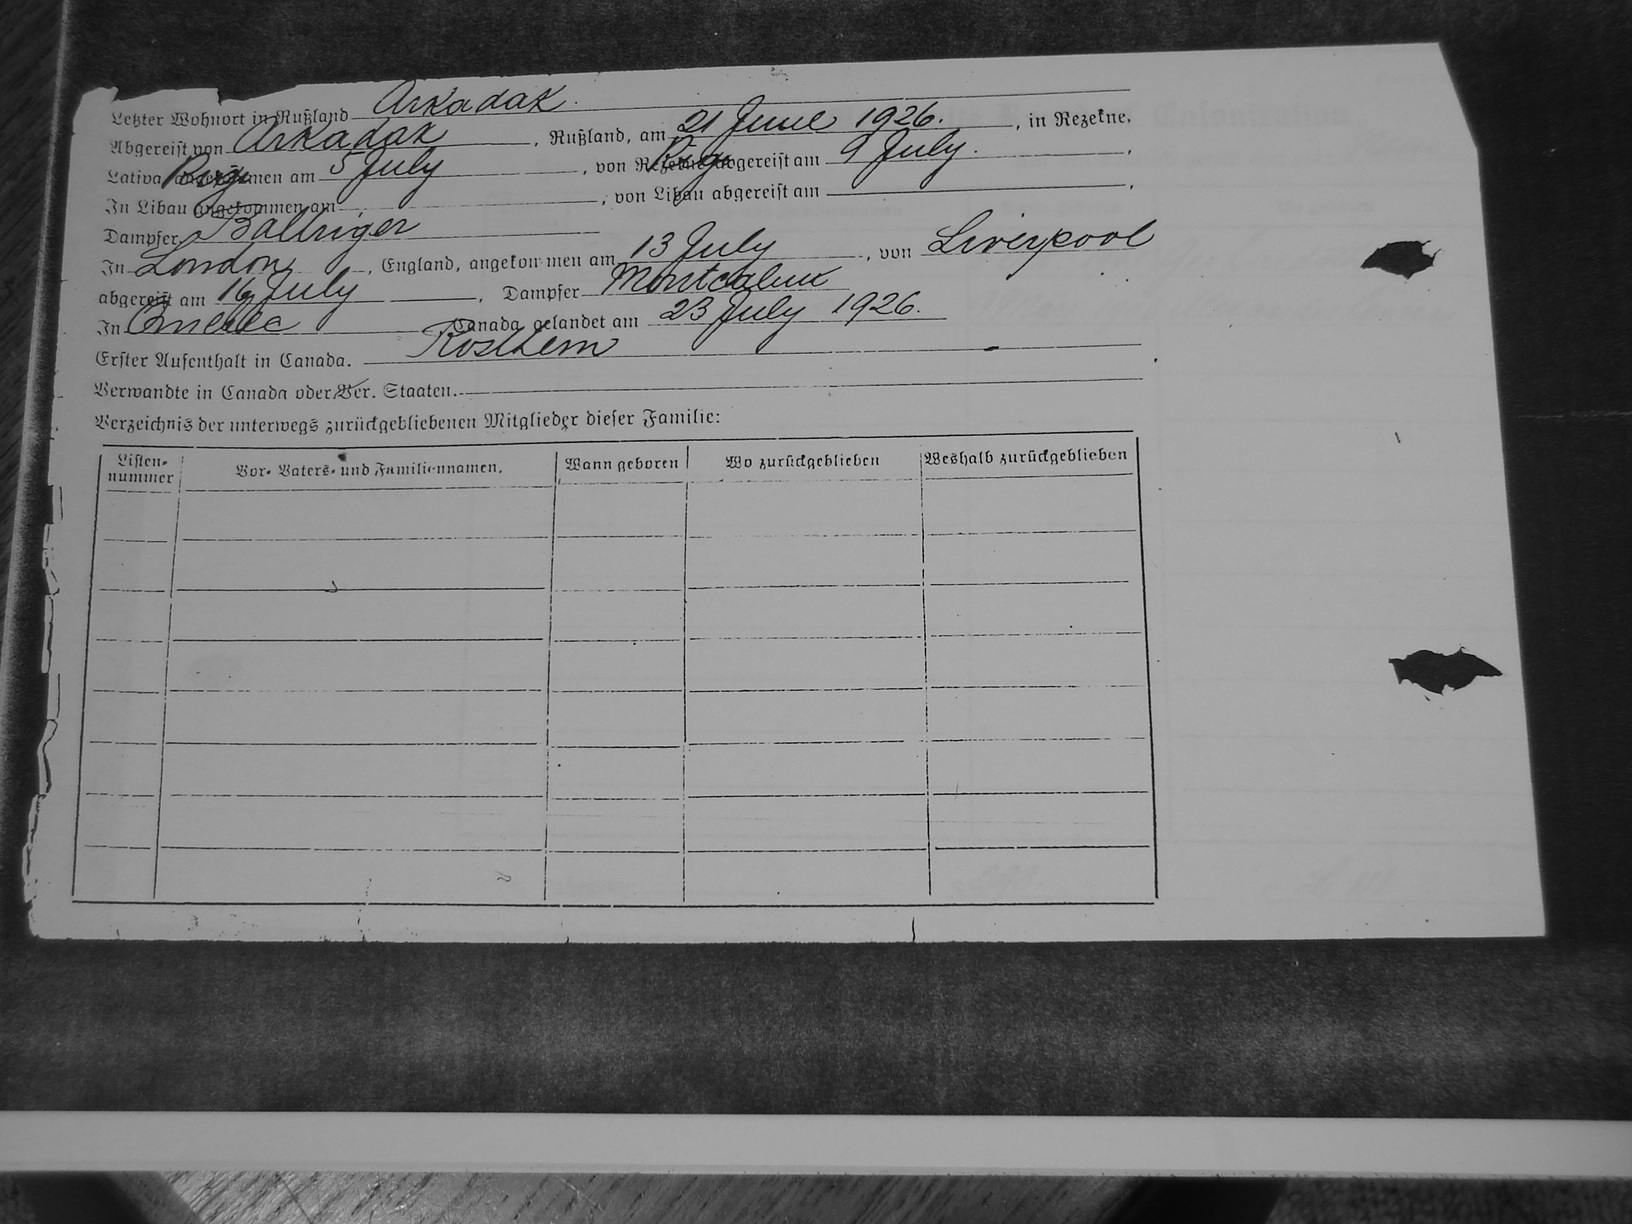 Letzter Wohnort in Rußland Arkadak.
Abgereist von Arkadak, Rußland, am 21 June 1926., in Rezekne,
Lativa, angekommen am Riga 5 July, von Rezekne Riga abgereist am 9 July.,
In Libau angekommen am, von Libau abgereist am,
Dampfer Baltriger
In London, England, angekommen am 13 July, von Liverpool
abgereist am 16 July, Dampfer Montcalm
In Quebec Canada gelandet am 23 July 1926.
Erster Aufenthalt in Canada. Rosthern
Verwandte in Canada oder Ver. Staaten.
Verzeichnis der unterwegs zurückgebliebenen Mitglieder dieser Familie:
Listen-nummer Vor- Vaters- und Familiennamen. Wann geboren Wo zurückgeblieben Weshalb zurückgeblieben